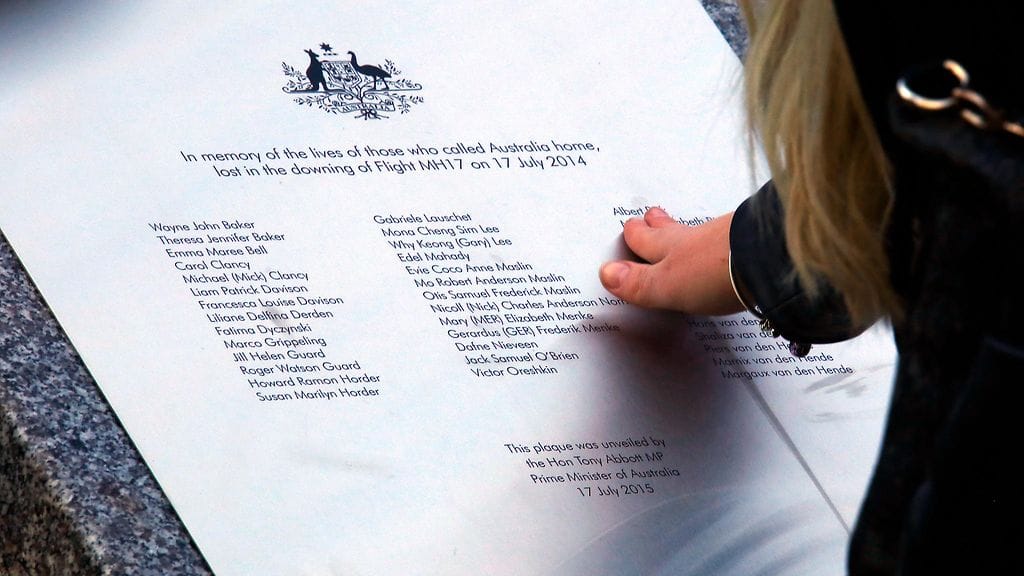 AUSTRALIA
In memory of the lives of those who called Australia home,
lost in the downing of Flight MH17 on 17 July 2014
Wayne John Baker
Theresa Jennifer Baker
Emma Maree Bell
Carol Clancy
Michael (Mick) Clancy
Liam Patrick Davison
Francesca Louise Davison
Liliane Delfina Derden
Fatima Dyczynski
Marco Grippeling
Jill Helen Guard
Roger Watson Guard
Howard Ramon Horder
Susan Marilyn Horder
Gabriele Lauschet
Mona Cheng Sim Lee
Why Keong (Gary) Lee
Edel Mahady
Evie Coco Anne Maslin
Mo Robert Anderson Maslin
Otis Samuel Frederick Maslin
Nicoll (Nick) Charles Anderson
Mary (MER) Elizabeth Menke
Gerardus (GER) Frederik Menke
Dafne Nieveen
Jack Samuel O'Brien
Victor Oreshkin
Albert
Hans van den
van den
Piers van den
Marnix van den Hende
Margaux van den Hende
This plaque was unveiled by
the Hon Tony Abbott MP
Prime Minister of Australia
17 July 2015